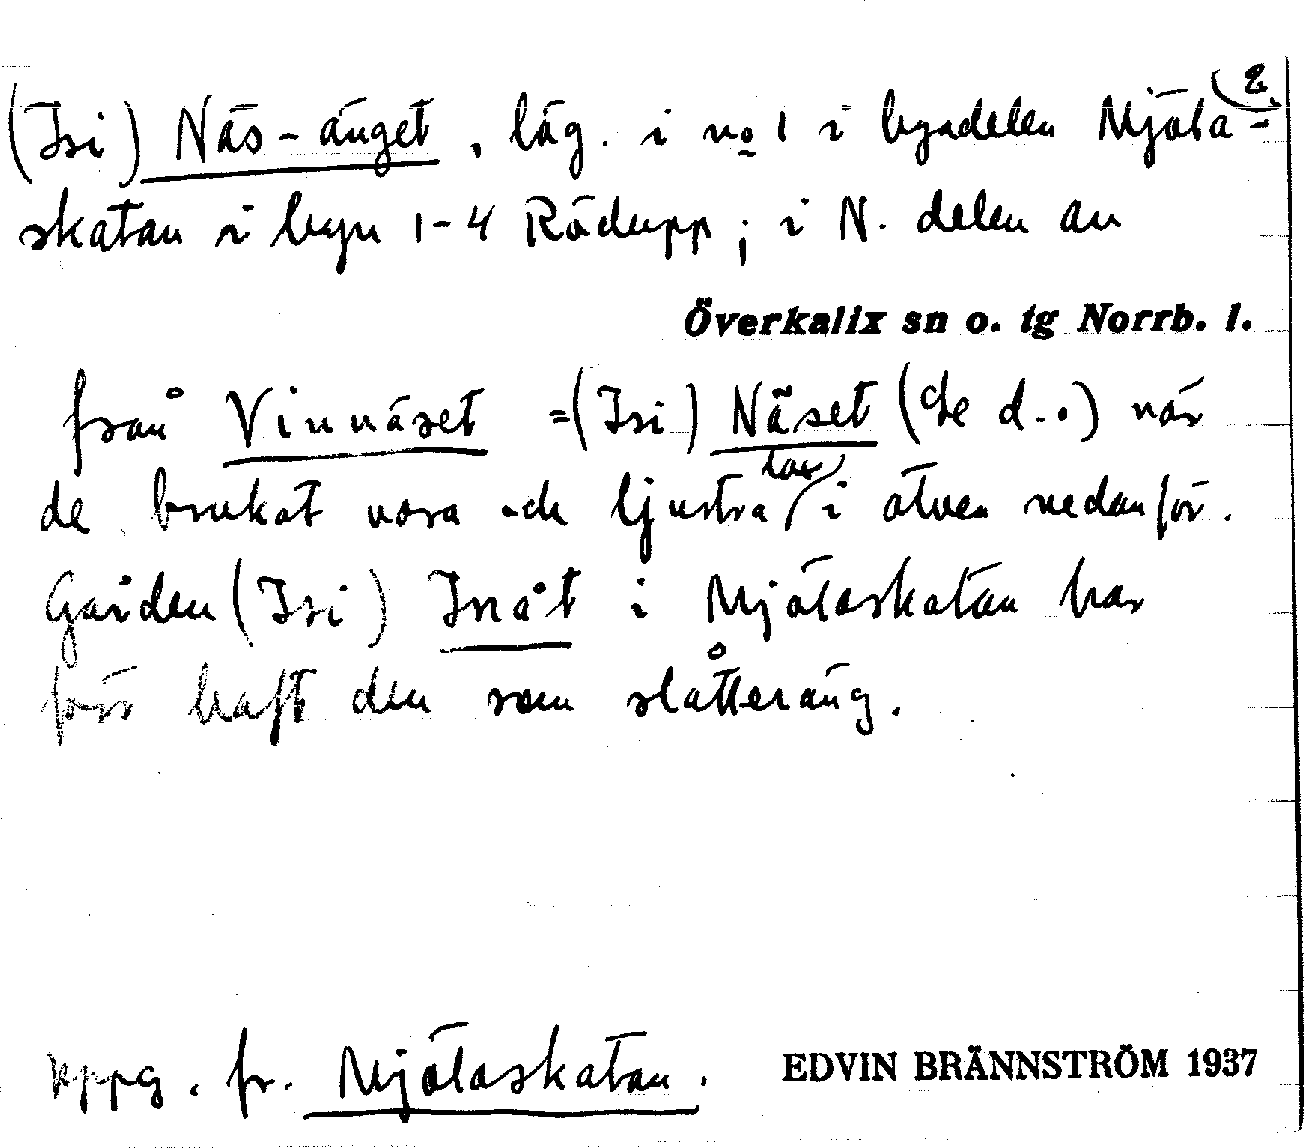 2.
(Isi) Näs-änget, läg. i no 1 i byadelen Mjöla-
skatan i byn 1-4 Rödupp; i N. delen av
Överkalix sn o. tg Norrb. l.
från Vinnäset =(Isi) Näset (de d..) när
de brukat vara och ljustra lax i älven nedanför.
Gården (Isi) Inåt i Mjölaskatan har
förr haft den som slåtteräng.
uppg. fr. Mjölaskatan.
EDVIN BRÄNNSTRÖM 1937